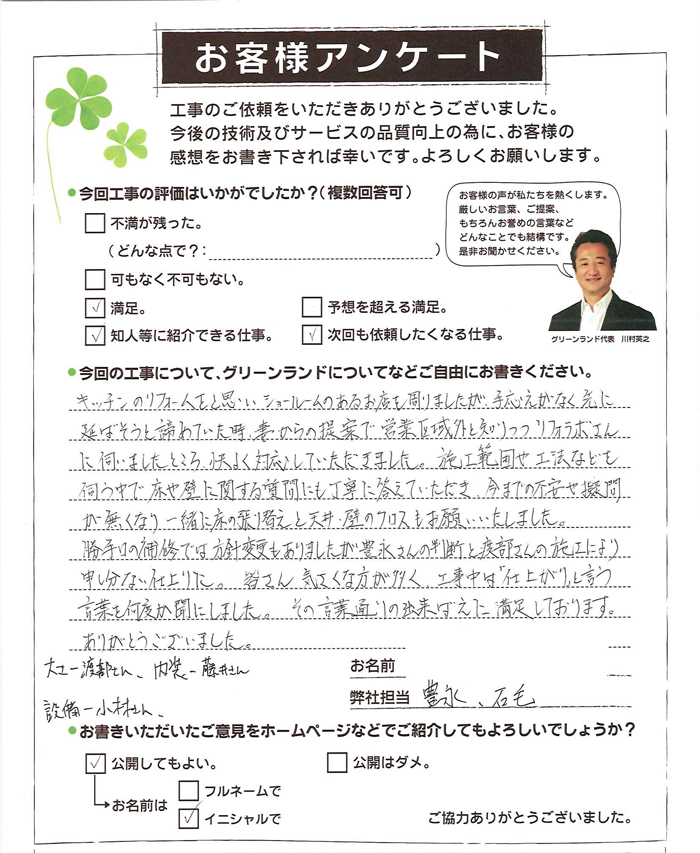 お客様アンケート
工事のご依頼をいただきありがとうございました。
今後の技術及びサービスの品質向上の為に、お客様の
感想をお書き下されば幸いです。よろしくお願いします。
●今回工事の評価はいかがでしたか？（複数回答可）
不満が残った。
（どんな点で？：　）
可もなく不可もない。
✓ 満足。
予想を超える満足。
✓ 知人等に紹介できる仕事。
✓ 次回も依頼したくなる仕事。
お客様の声が私たちを熱くします。
厳しいお言葉、ご提案、
もちろんお誉めの言葉など
どんなことでも結構です。
是非お聞かせください。
グリーンランド代表　川村英之
●今回の工事について、グリーンランドについてなどご自由にお書きください。
キッチンのリフォームをと思い ショールームのあるお店も周りましたが、手応えがなく 先に
延ばそうと諦めていた時、妻からの提案で 営業区域外と知りつつ リフォラボさん
に伺いましたところ、快よく対応していただきました。 施工範囲や工法なども
伺う中で 床や壁に関する質問にも丁寧に答えていただき、今までの不安や擬問
が無くなり 一緒に床の張り替えと天井・壁のクロスもお願いいたしました。
勝手口の補修では方針変更もありましたが 豊永さんの判断と渡部さんの施工により
申し分ない仕上りに。 皆さん 気さくな方が多く、工事中は「仕上がり」と言う
言葉を何度か聞にしました。 その言葉通りの出来ばえに 満足しております。
ありがとうございました。
大工ー渡部さん、内装ー藤井さん
お名前
設備ー小林さん、
弊社担当 豊永、石毛
●お書きいただいたご意見をホームページなどでご紹介してもよろしいでしょうか？
✓ 公開してもよい。
公開はダメ。
お名前は
フルネームで
✓ イニシャルで
ご協力ありがとうございました。